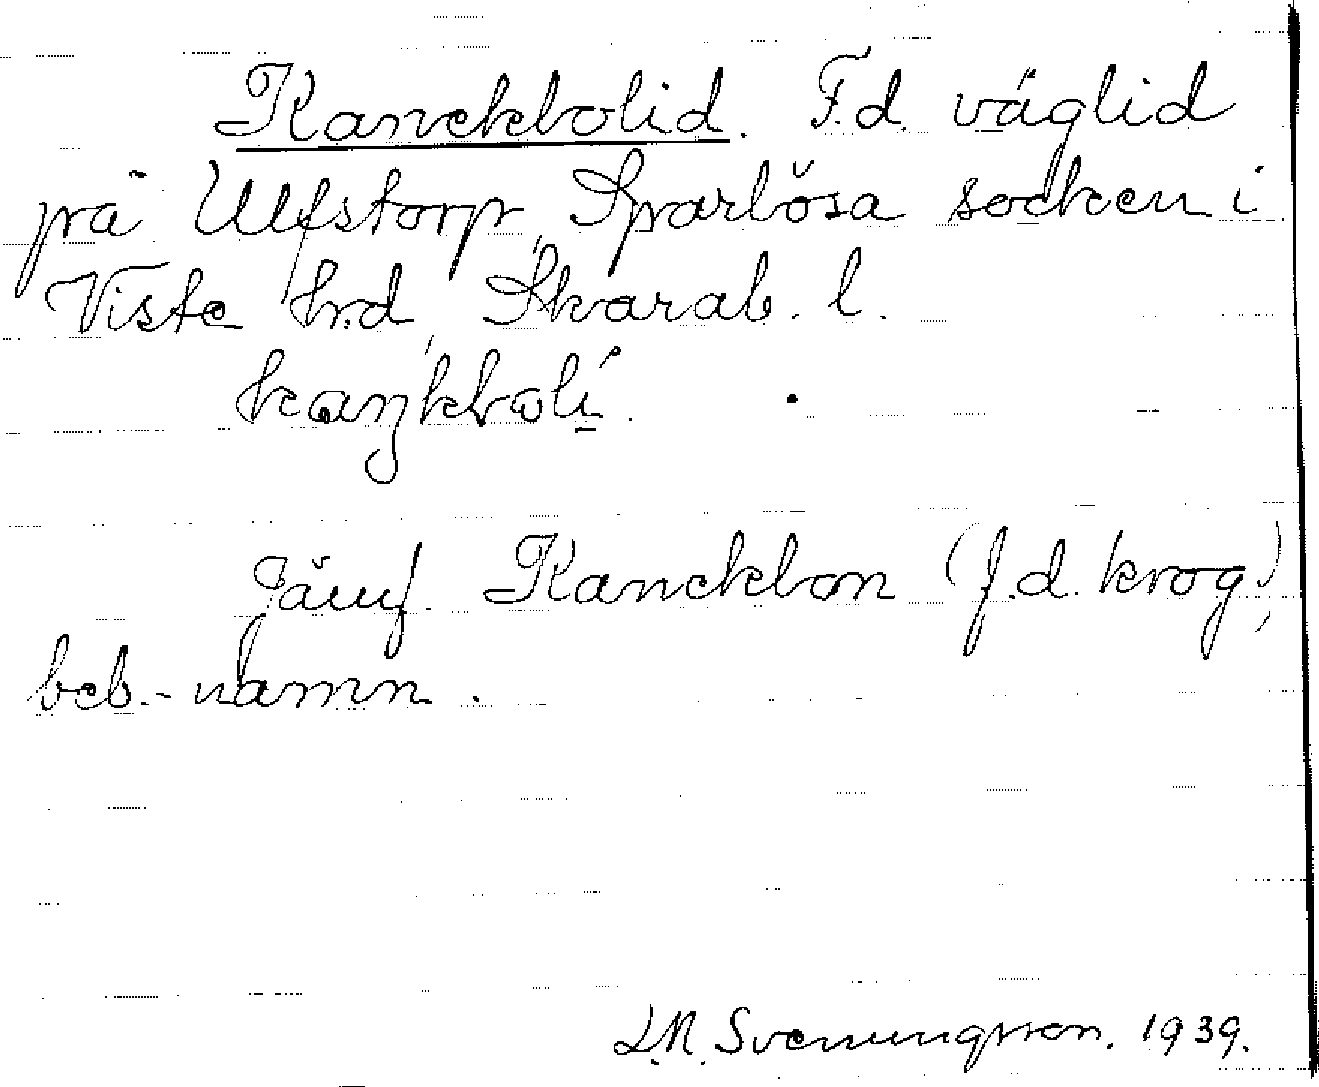 Kanckbolid. F.d. väglid
på Ulfstorp, Sparlösa socken i
Viste hrd, Skarab. l.
kaŋkboli.
Jämf. Kanckbon (f.d. krog),
beb.-namn.
L.N. Svenungsson. 1939.